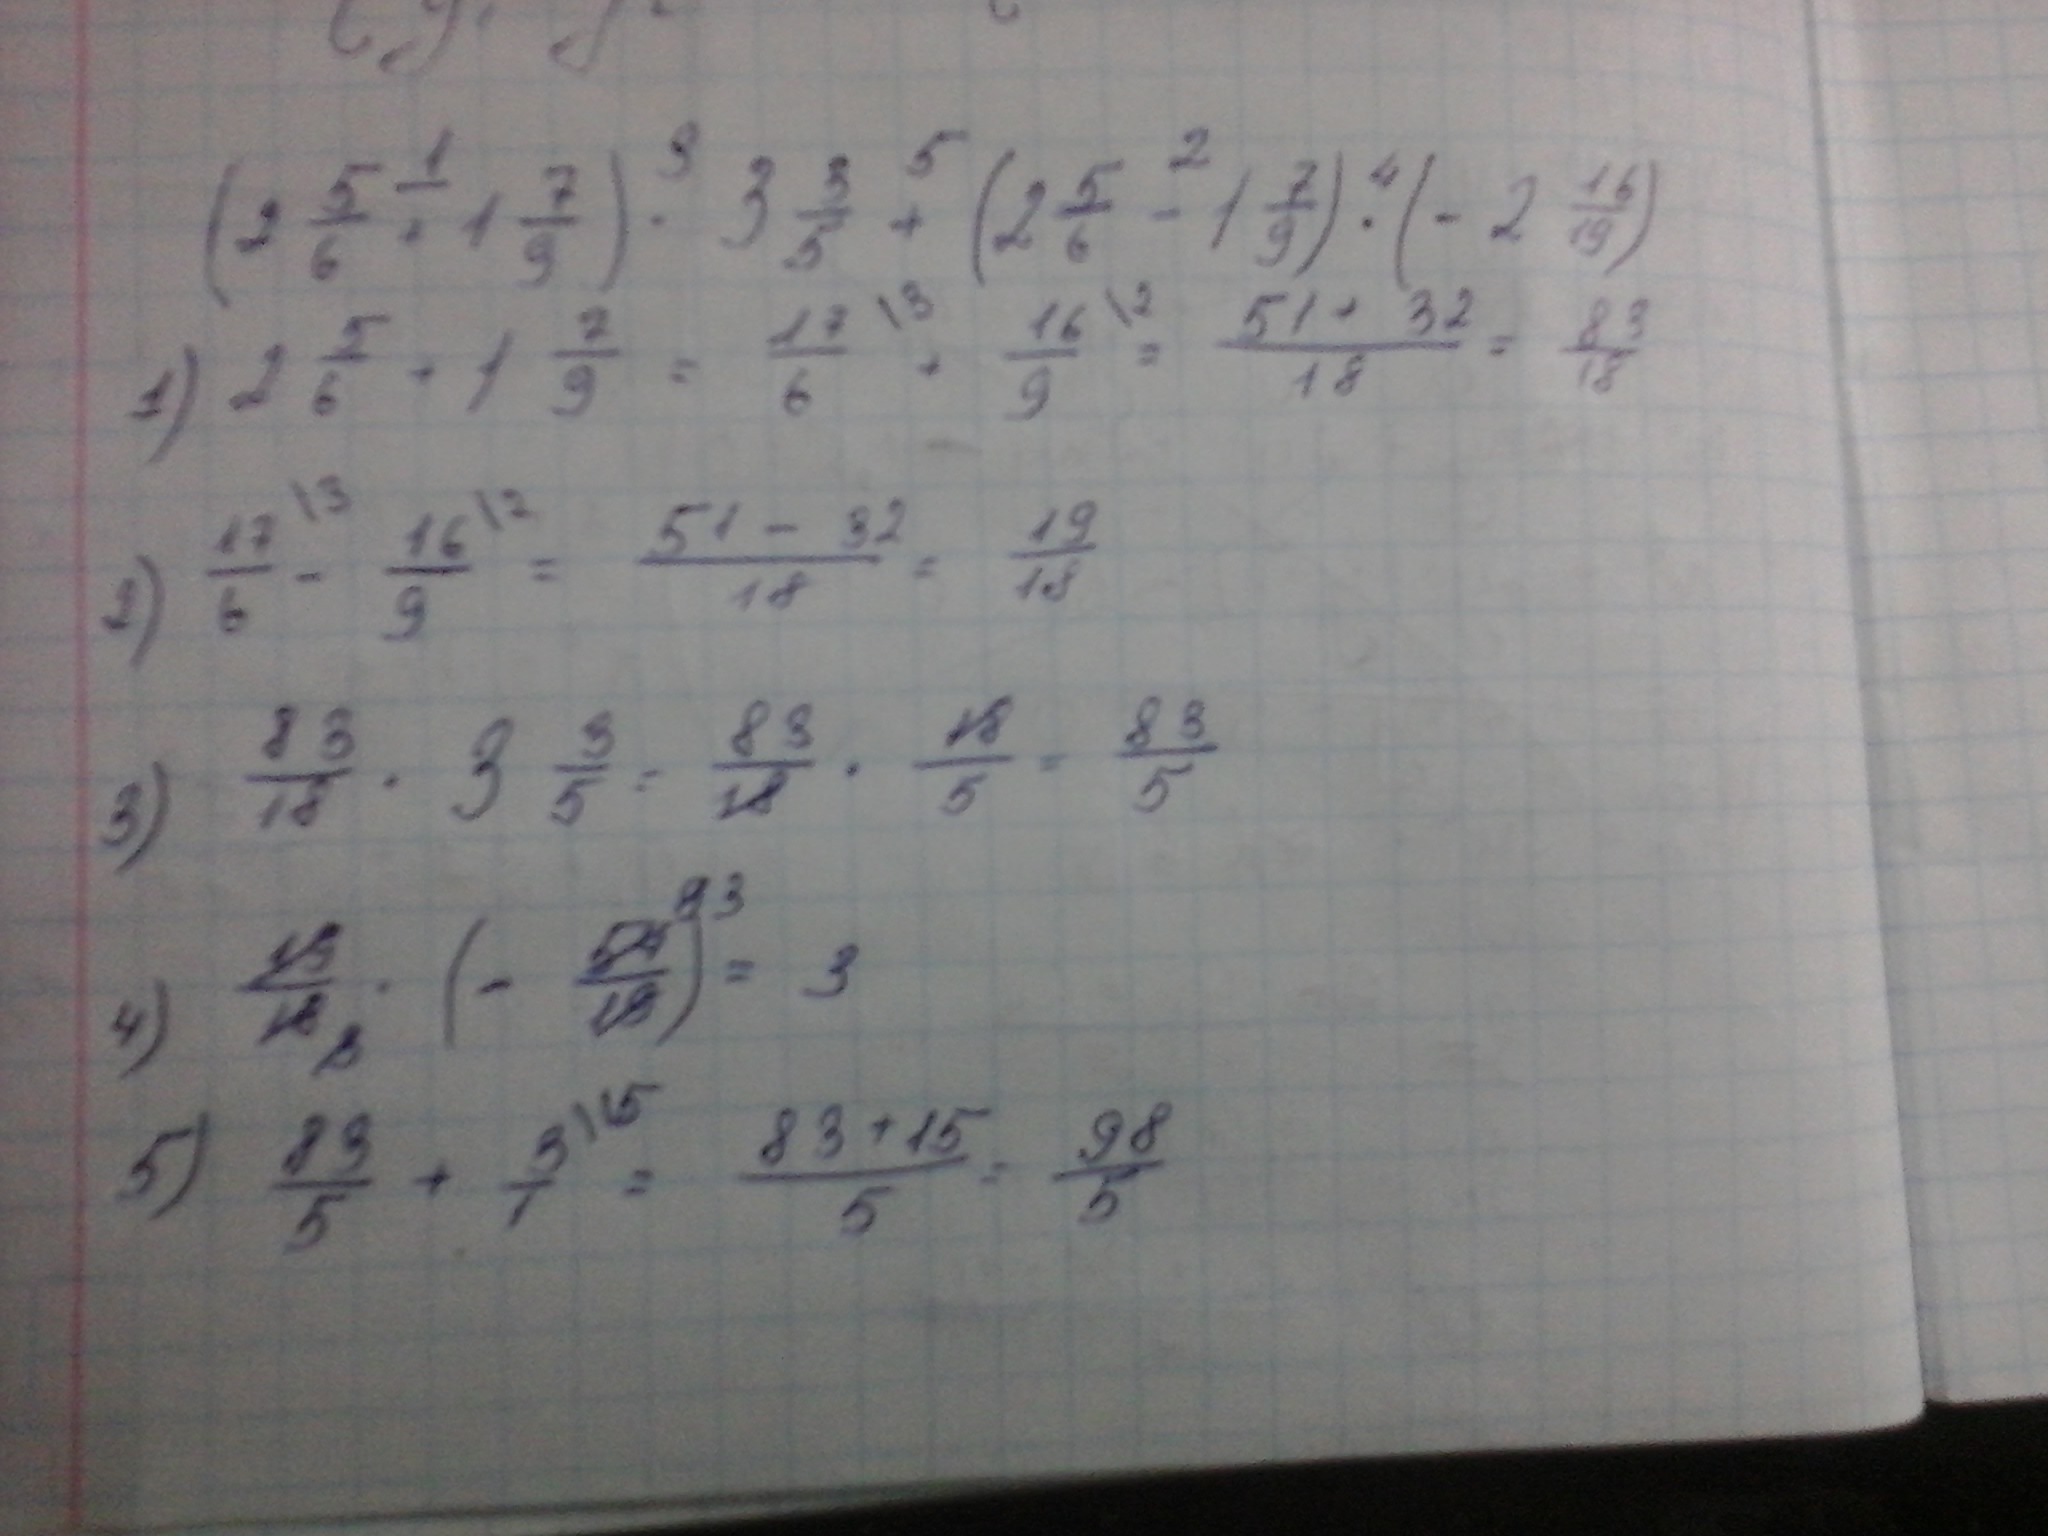 (2 5/6 + 1 7/9) · 3 3/5 + (2 5/6 - 1 7/9) · (- 2 16/19)
1) 2 5/6 + 1 7/9 = 17/6 \3 + 16/9 \2 = 51 + 32/18 = 83/18
2) 17/6 \3 - 16/9 \2 = 51 - 32/18 = 19/18
3) 83/18 · 3 3/5 = 83/18 · 18/5 = 83/5
4) 19/18 · (- 54/19) 3 = 3
5) 83/5 + 3/1 \5 = 83+15/5 = 98/5